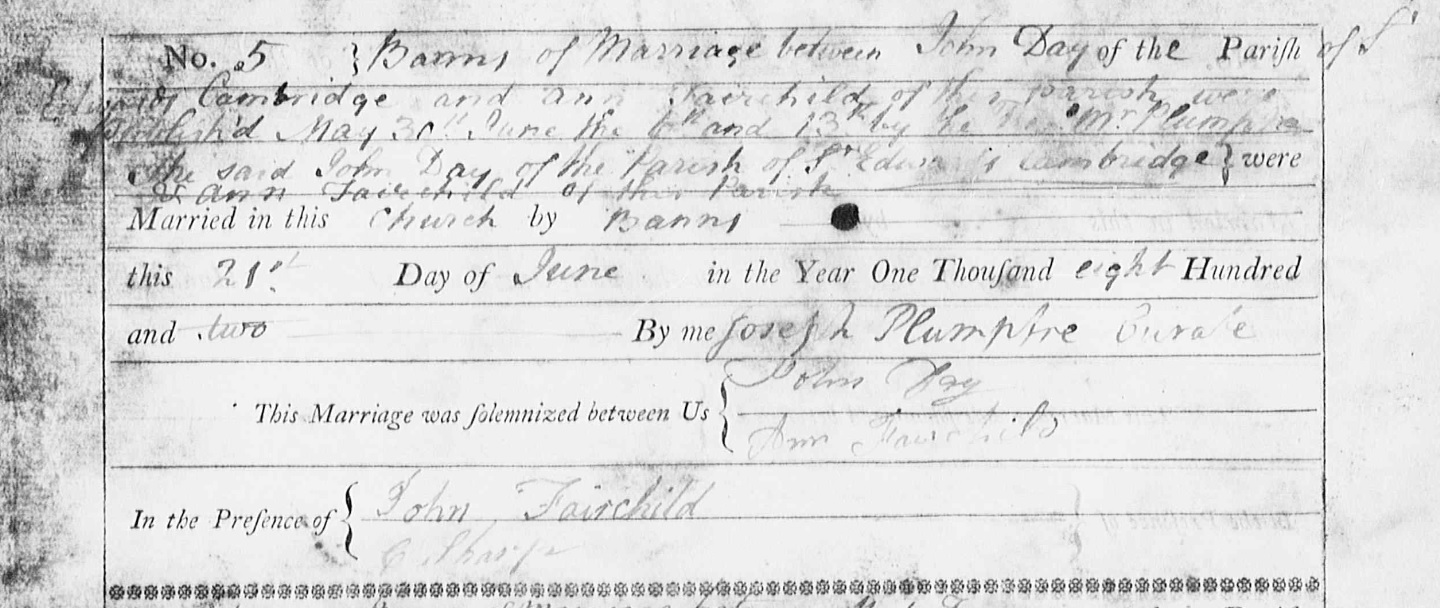 No. 5 } Banns of Marriage between John Day of the Pariſh of St
Edwards Cambridge and Ann Fairchild of this parish were
Publish'd May 30th June the 6th and 13th by the Revd Mr Plumptre
The said John Day of the Parish of St Edward's Cambridge } were
& Ann Fairchild of this Parish
Married in this Church by Banns
this 21st Day of June in the Year One Thouſand eight Hundred
and two By me Joseph Plumptre Curate
This Marriage was ſolemnized between Us { John Day
Ann Fairchild
In the Preſence of { John Fairchild
C Sharp